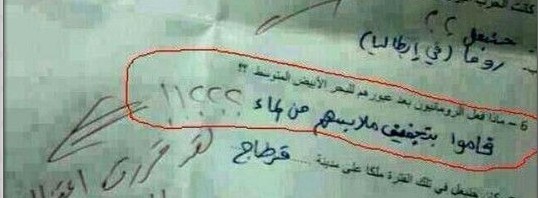 كنت الحرب
حنبعل ؟؟
ب- روما (في إيطاليا)
6 – ماذا فعل الرومانيون بعد عبورهم للبحر الأبيض المتوسط ؟؟
قاموا بتجفيف ملابسهم من الماء ؟؟؟؟!!
حنبعل في تلك الفترة ملكا على مدينة ..... قرطاج
لقد قررت اعتزال